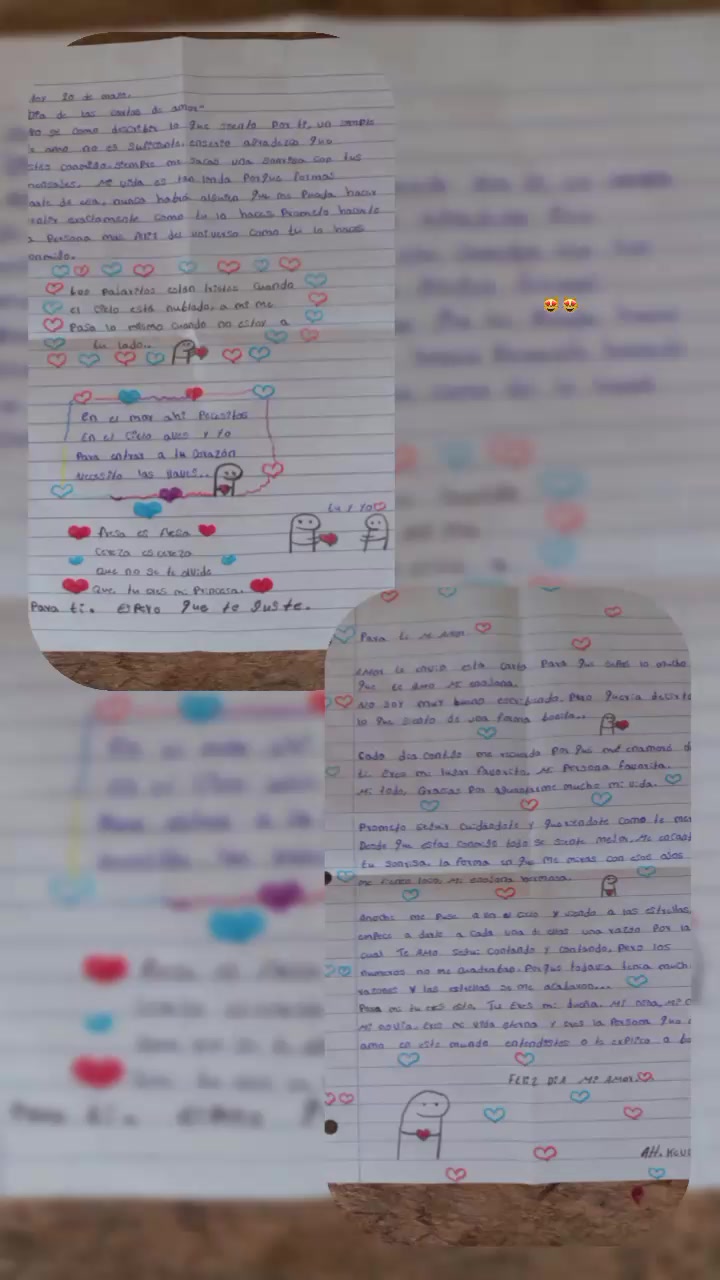 20 de mayo.
Día de las cartas de amor-
se como describir lo que siento por ti, un simple
amo no es suficiente, enserio agradezco que
estes conmigo, siempre me sacas una sonrisa con tus
mensajes. Mi vida es tan linda porque formas
parte de ella, nunca habrá alguien que me pueda hacer
exactamente como tu lo haces Prometo hacerte
la Persona mas feliz del universo como tu lo haces
conmigo.
Los pajaritos están tristes cuando
el cielo está nublado, a mi me
Pasa lo mismo cuando no estoy a
tu lado..
En el mar ahi Pecesitos
En el cielo aves y yo
Para entrar a tu corazón
necesito las llaves...
tu y yo
Fresa es Fresa
cereza es cereza
que no se te olvide
Que tu eres mi Princesa.
Para ti. espero que te guste.
😍😍
Para ti Mi Amor
Amor te envio esta carta Para que sepas lo mucho
que te Amo Mi
No soy muy bueno escribiendo, Pero queria decirte
lo que siento de una forma bonita..
Cada dia contigo me recuerda Por que me enamoré d
ti. Eres mi lugar favorito, Mi Persona favorita.
Mi todo, Gracias Por aguantarme mucho mi vida.
Prometo seguir cuidándote y queriendote como te mer
Desde que estas conmigo todo se siente mejor, Me encant
tu sonrisa, la forma en que me miras con esos ojos
me tienes loco, Mi hermosa.
Anoche me Puse a ver el cielo y viendo a las estrellas,
empece a darle a cada una de ellas una razón Por la
cual Te Amo seguí contando y contando, Pero los
numeros no me cuadraban. Porque todavia tenia much
razones y las estrellas se me acabaron...
Para mi tu eres esta, Tu Eres mi dueña, Mi niña, Mi c
Mi novia, Eres mi vida eterna y eres la Persona que
amo en este mundo entendiste o te explico a be
FELIZ DIA MI AMOR.
Att.